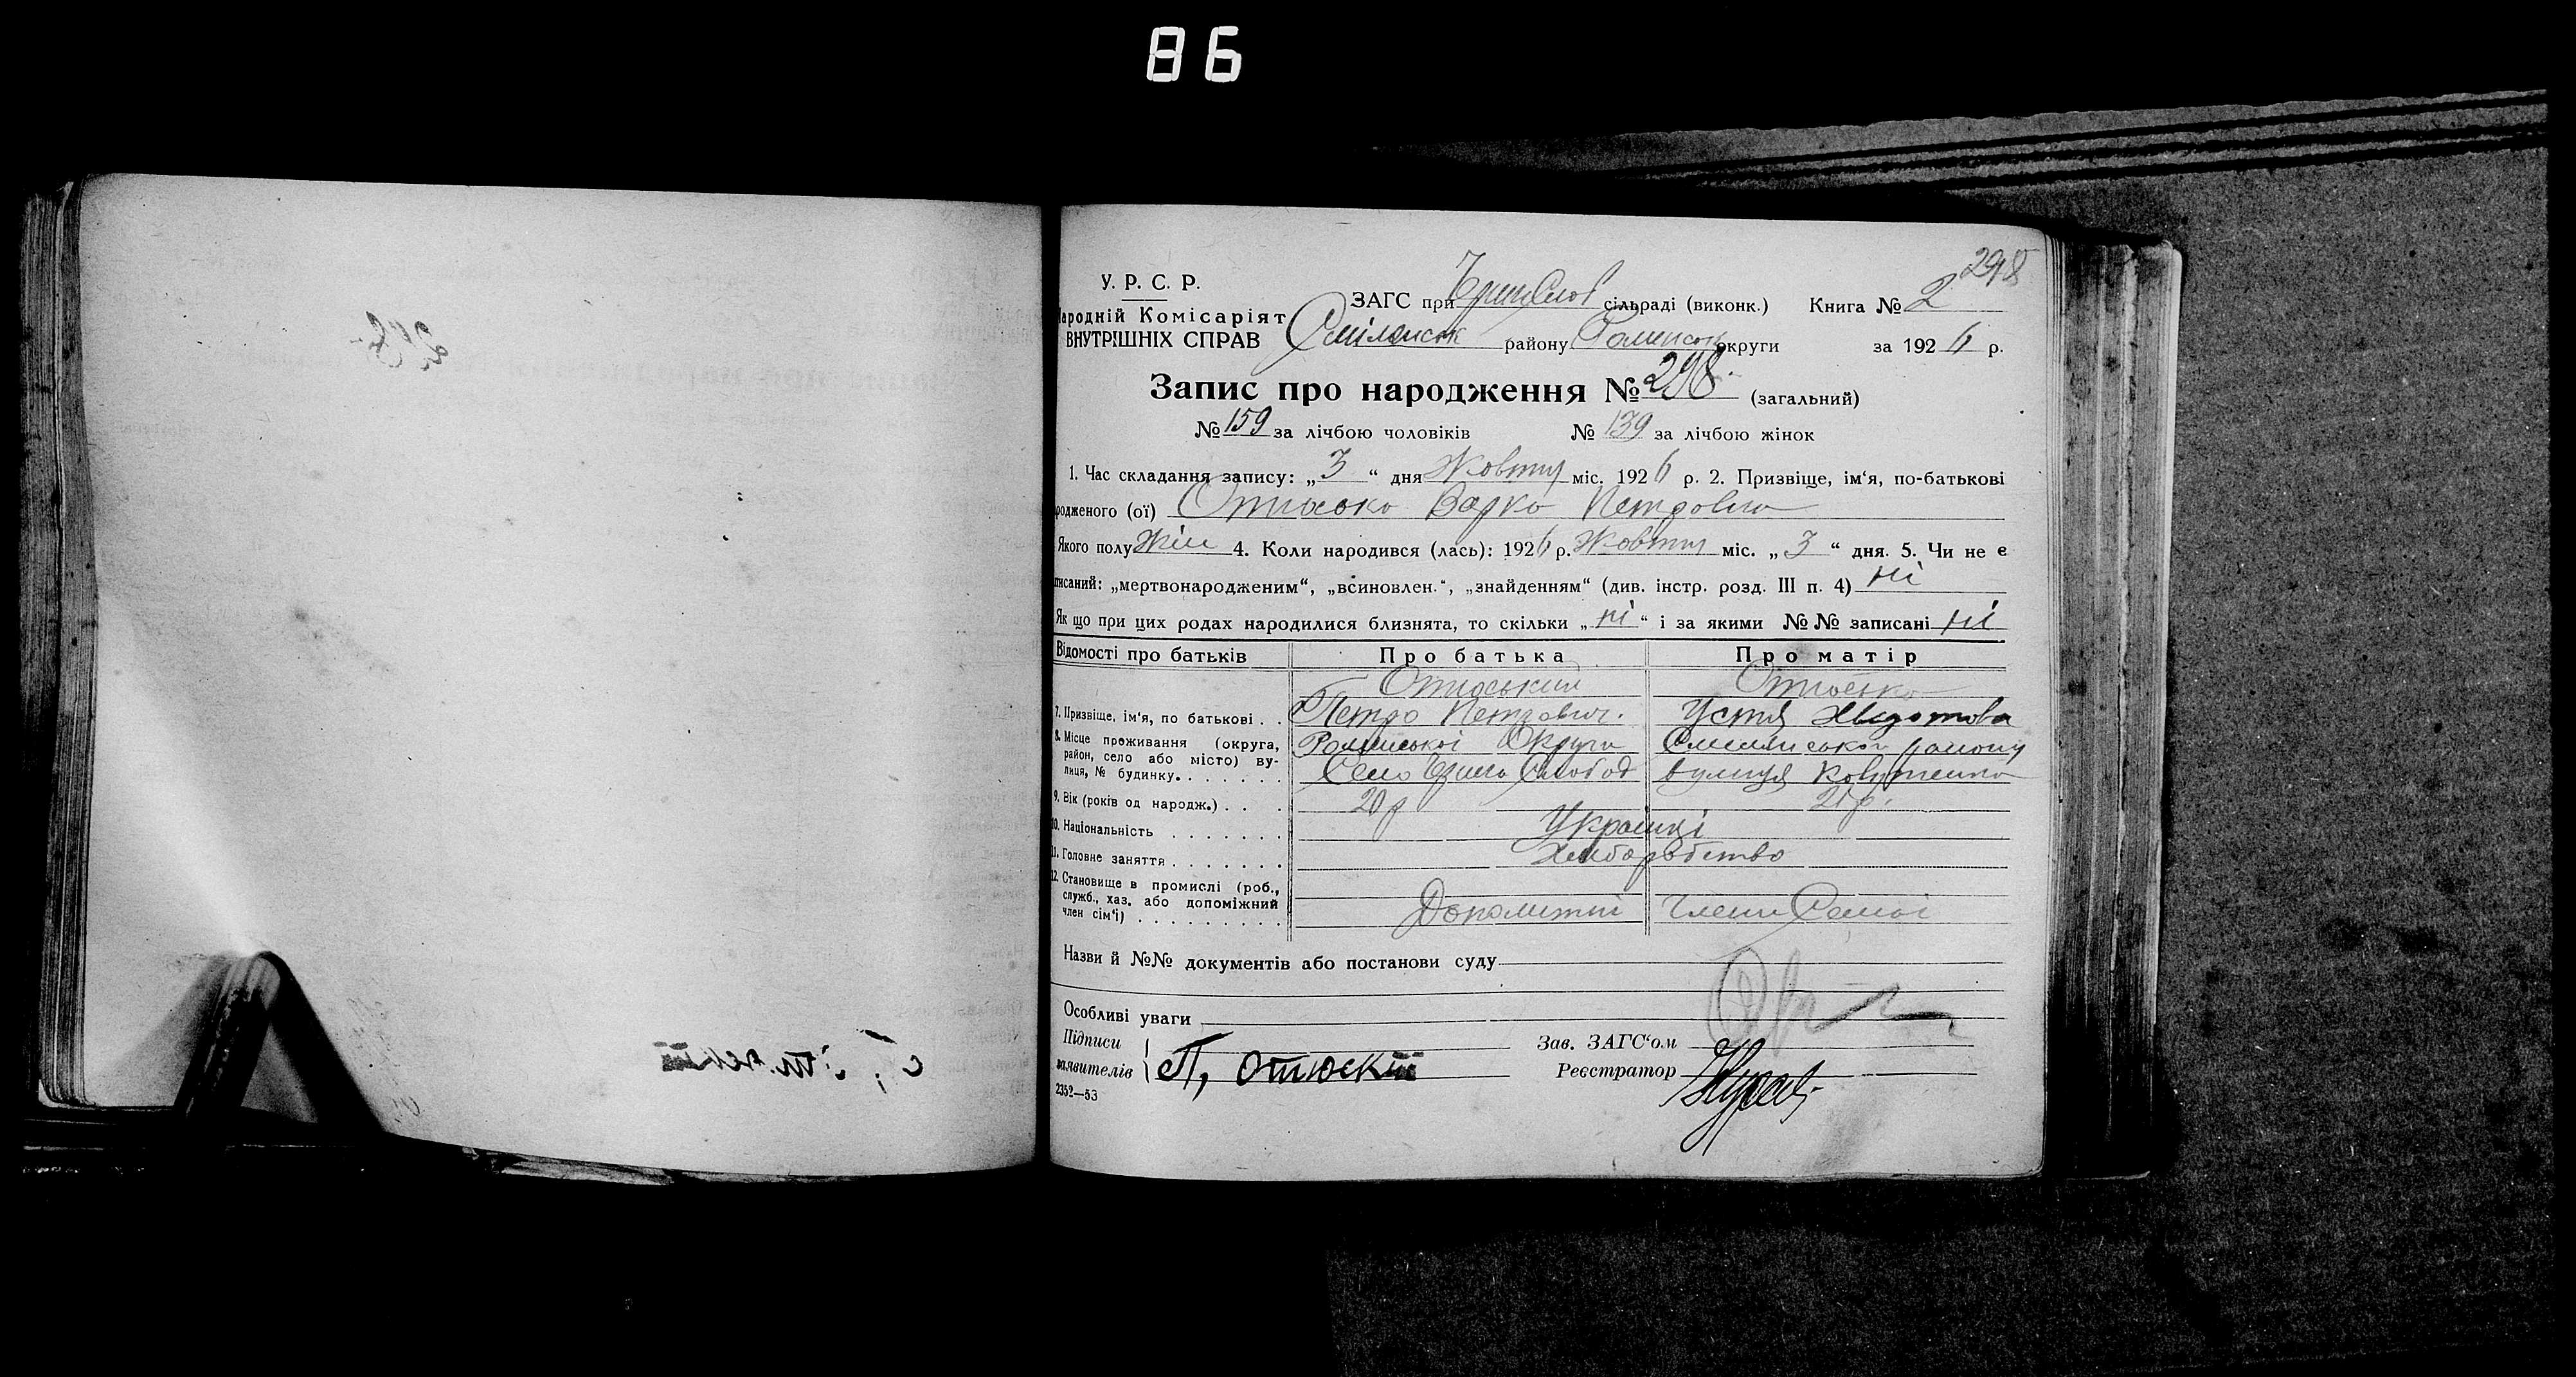 86
298
У. Р. С. Р.
Народній Комісаріят
ВНУТРІШНІХ СПРАВ
ЗАГС при сільраді (виконк.) Книга № 2
Смілянськ району Роменськ округи за 1926 р.
Запис про народження № 298 (загальний)
№ 159 за лічбою чоловіків № 139 за лічбою жінок
1. Час складання запису: „3“ дня Жовтня міс. 1926 р. 2. Призвіще, ім‘я, по-батькові
родженого (ої) Варка Петровна
Якого полу Жін 4. Коли народився (лась): 1926 р. Жовтня міс. „3“ дня. 5. Чи не є
писаний: „мертвонародженим“, „всиновлен.“, „знайденням“ (див. інстр. розд. III п. 4) ні
Як що при цих родах народилися близнята, то скільки „ні“ і за якими №№ записані ні
Відомості про батьків Про батька Про матір
7. Призвіще, ім‘я, по батькові . . Петро Петрович. Устя
8. Місце проживання (округа, район, село або місто) вулиця, № будинку. Роменської Округи району
Село Слобод вулиця
9. Вік (років од народж.) . . . 20 р 21 р.
10. Національність . . . . . . . Українці
11. Головне заняття . . . . . . . Хліборобство
12. Становище в промислі (роб.,
служб., хаз. або допоміжний
член сім‘ї) . . . . . . . . . Допоміжні члени Семьі
Назви й №№ документів або постанови суду
Особливі уваги
Підписи
заявителів П, Отюскій
Зав. ЗАГС‘ом
Реєстратор
2352—53